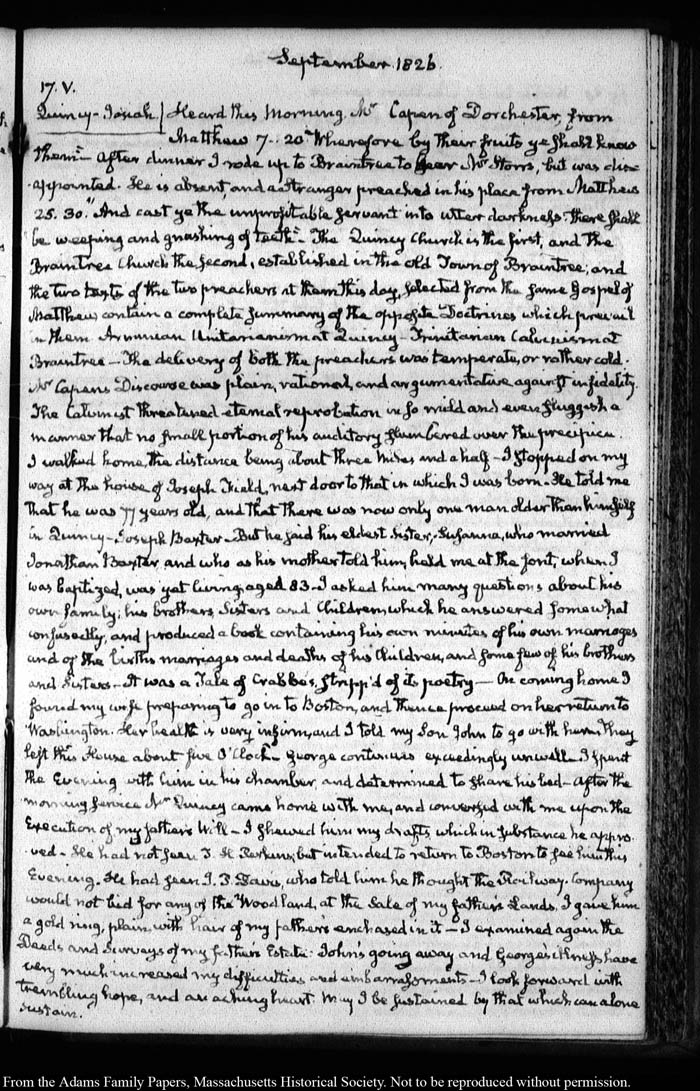 September 1826.
17. V.
Quincy-Josiah/ Heard this Morning, Mr Capen of Dorchester, from
Matthew 7. 20 "Wherefore by their fruits ye shall know
them"- After dinner I rode up to Braintree to hear Mr Storrs, but was dis-
appointed. He is absent and a Stranger preached in his place from Matthew
25. 30. "And cast ye the unprofitable servant into utter darkness: there shall
be weeping and gnashing of teeth"- The Quincy Church is the first, and the
Braintree Church the second, established in the old Town of Braintree; and
the two texts of the two preachers at them this day, selected from the same Gospel of
Matthew contain a complete summary of the opposite Doctrines which prevail
in them Arminian Unitarianism at Quincy- Trinitarian Calvinism at
Braintree- The delivery of both the preachers was temperate, or rather cold.
Mr Capen's Discourse was plain, rational, and argumentative against infidelity.
The Calvinist threatened eternal reprobation in so mild and even sluggish a
manner that no small portion of his auditory slumbered over the precipice.
I walked home, the distance being about three miles and a half- I stopped on my
way at the house of Joseph Field, next door to that in which I was born- He told me
that he was 77 years old, and that there was now only one man older than himself
in Quincy- Joseph Baxter- But he said his eldest Sister, Susanna, who married
Jonathan Baxter and who as his mother told him, held me at the font, when I
was baptized, was yet living aged 83- I asked him many questions about his
own family; his brothers Sisters and Children, which he answered somewhat
confusedly, and produced a book containing his own minutes of his own marriages
and of the births marriages and deaths of his Children, and some few of his brothers
and Sisters- It was a Tale of Crabbe's, stripp'd of its poetry- On coming home I
found my wife preparing to go in to Boston, and thence proceed on her return to
Washington. Her health is very infirm, and I told my Son John to go with her- They
left this House about five O'Clock- George continues exceedingly unwell- I spent
the Evening with him in his chamber, and determined to share his bed- After the
morning service Mr Quincy came home with me, and conversed with me upon the
Execution of my father's Will- I shewed him my drafts, which in substance he appro-
ved- He had not seen T. H. Perkins, but intended to return to Boston to see him this
Evening. He had seen I. P. Davis, who told him he thought the Railway Company
would not bid for any of the Wood land, at the Sale of my father's Lands. I gave him
a gold ring, plain, with hair of my father's enchased in it- I examined again the
Deeds and Surveys of my father's Estate. John's going away and George's illness have
very much increased my difficulties and embarrassments- I look forward with
trembling hope, and an aching heart. May I be sustained by that which can alone
sustain.
From the Adams Family Papers, Massachusetts Historical Society. Not to be reproduced without permission.